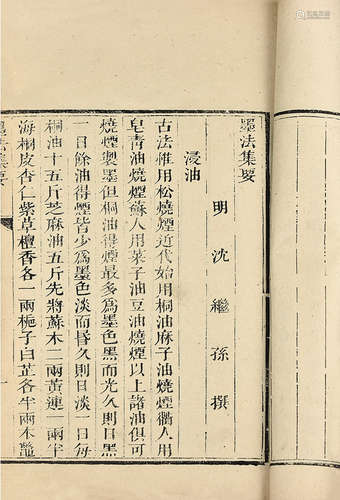 墨法集要
明沈繼孫撰
浸油
古法惟用松燒煙近代始用桐油麻子油燒煙衢人用
皂青油燒煙蘇人用菜子油豆油燒煙以上諸油俱可
燒煙製墨但桐油得煙最多為墨色黑而光久則日黑
一日餘油得煙皆少為墨色淡而昏久則日淡一日每
桐油十五斤芝麻油五斤先將蘇木二兩黃連一兩半
海桐皮杏仁紫草檀香各一兩梔子白芷各半兩木鼈